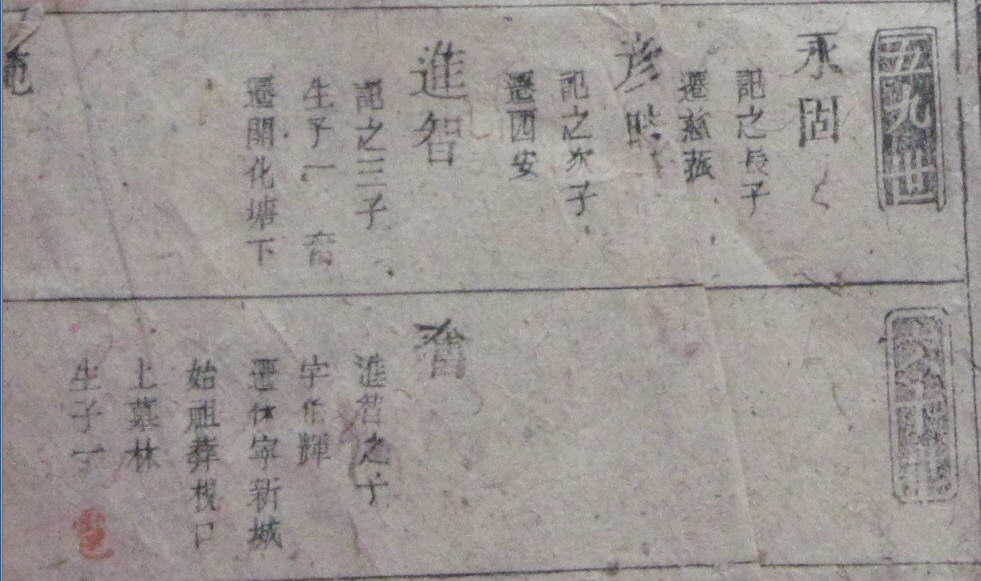 五九世
永固
記之長子
遷蓀
彦
記之次子
遷西安
進智
記之三子
生子一 奮
遷開化塘下
六十世
奮
進智之子
字伯輝
遷休寧新城
始祖葬梘口
上墓林
生子一